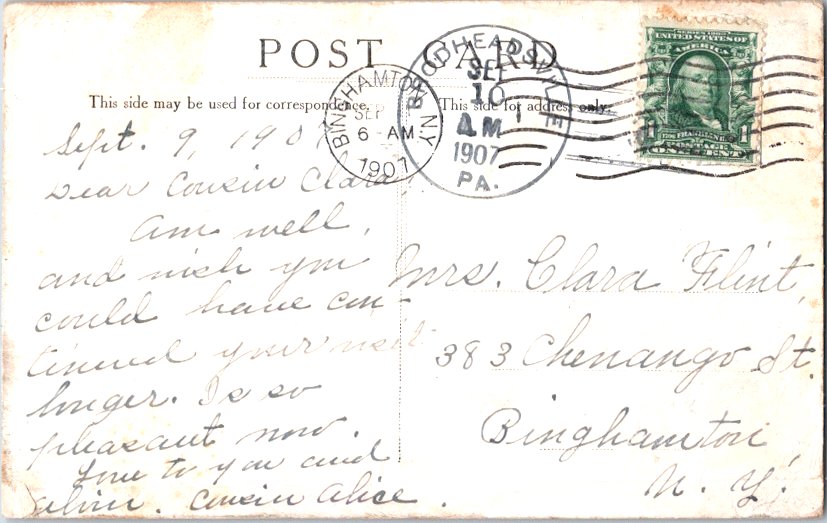 POST CARD
This side may be used for correspondence.
This side for address only.
BINGHAMTON N.Y.
SEP
6-AM
1907
BRODHEADSVILLE
SEP
10
AM
1907
PA.
SERIES 1902
UNITED STATES OF
AMERICA
FRANKLIN
1 1
POSTAGE
ONE CENT
Sept. 9, 190
Dear Cousin Clara
Am well,
and wish you
could have con-
tinued your visit
longer. Is so
pleasant now.
Love to you and
Alvin. Cousin Alice.
Mrs. Clara Flint,
383 Chenango St.
Binghamton
N. Y.